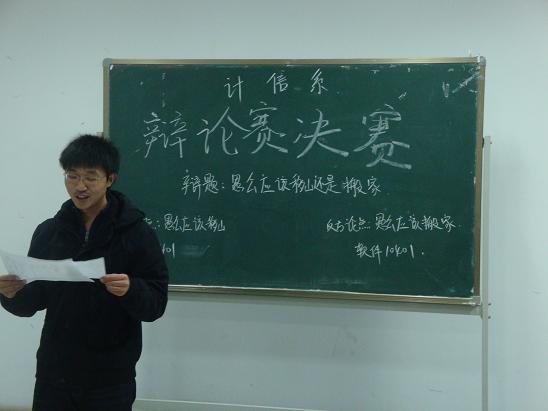 计信系
辩论赛决赛
辩题：愚公应该移山还是搬家
点：愚公应该移山
反方论点：愚公应该搬家
401
软件10401.